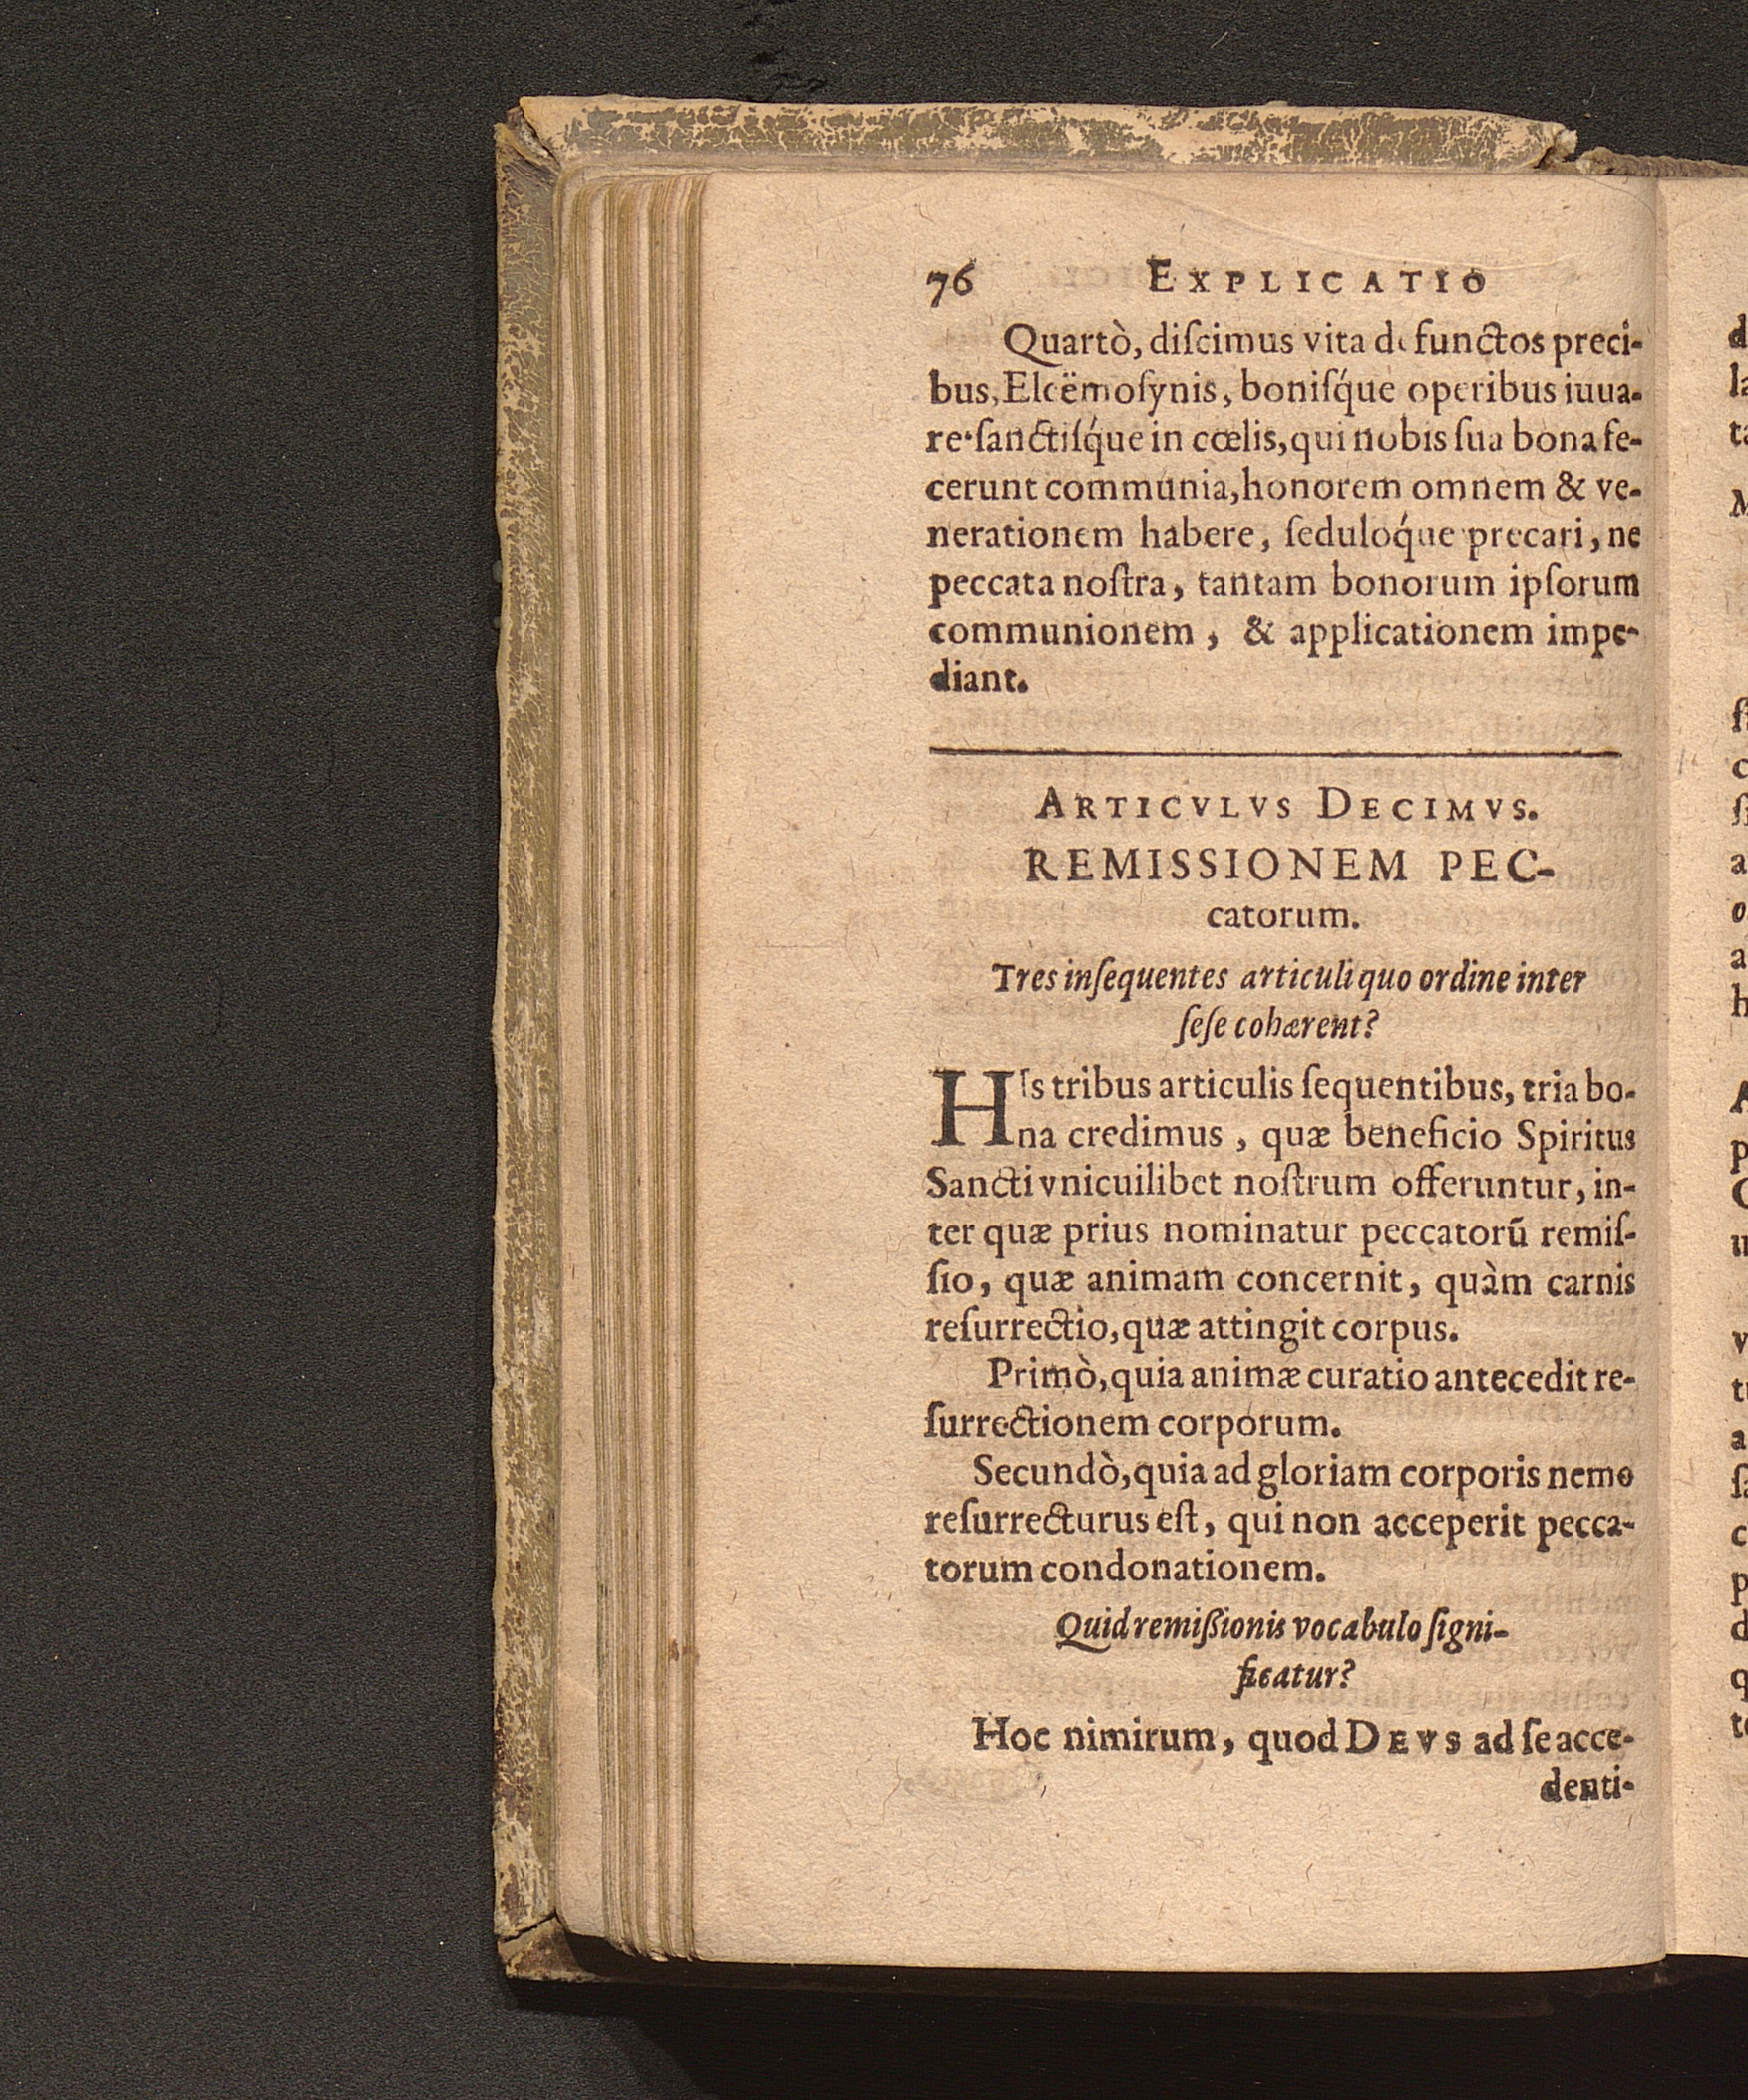 76 EXPLICATIO
Quartò, diſcimus vita defunctos preci-
bus, Eleëmoſynis, boniſq́ue operibus iuua-
re·ſanctiſq́ue in cœlis, qui nobis ſua bona fe-
cerunt communia, honorem omnem & ve-
nerationem habere, ſeduloq́ue precari, ne
peccata noſtra, tantam bonorum ipſorum
communionem, & applicationem impe-
diant.
ARTICVLVS DECIMVS.
REMISSIONEM PEC-
catorum.
Tres inſequentes articuli quo ordine inter
ſeſe cohærent?
HIs tribus articulis ſequentibus, tria bo-
na credimus, quæ beneficio Spiritus
Sancti vnicuilibet noſtrum offeruntur, in-
ter quæ prius nominatur peccatorū remiſ-
ſio, quæ animam concernit, quàm carnis
reſurrectio, quæ attingit corpus.
Primò, quia animæ curatio antecedit re-
ſurrectionem corporum.
Secundò, quia ad gloriam corporis nemo
reſurrecturus eſt, qui non acceperit pecca-
torum condonationem.
Quid remißionis vocabulo ſigni-
ficatur?
Hoc nimirum, quod DEVS ad ſe acce-
denti-